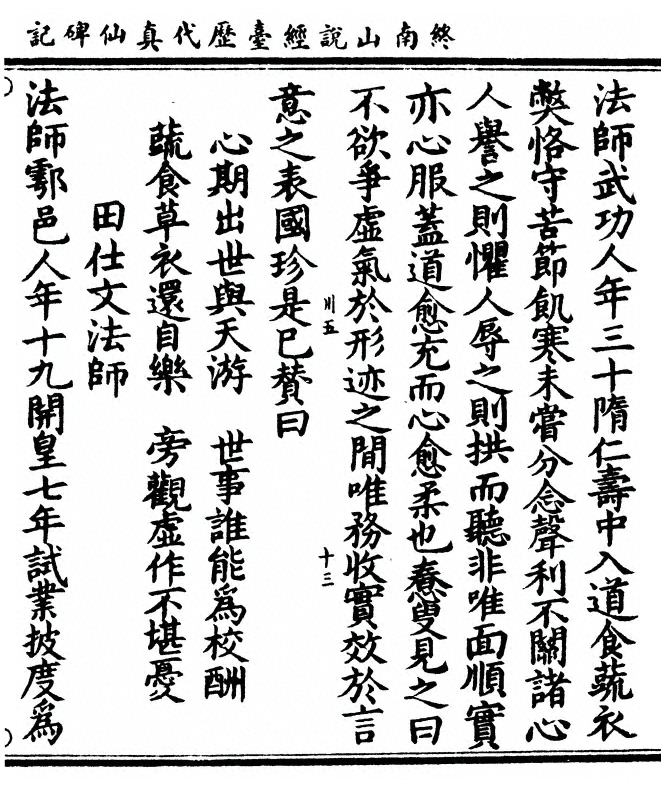 終南山說經臺歷代真仙碑記
法師武功人年三十隋仁壽中入道食蔬衣
弊恪守苦節飢寒未嘗介念聲利不關諸心
人譽之則懼人辱之則拱而聽非唯面順實
亦心服蓋道愈充而心愈柔也惷叟見之曰
不欲爭虛氣於形迹之間唯務收實效於言
卅五
十三
意之表國珍是已贊曰
心期出世與天游 世事誰能爲校酬
蔬食草衣還自樂 旁觀虛作不堪憂
田仕文法師
法師鄠邑人年十九開皇七年試業披度爲